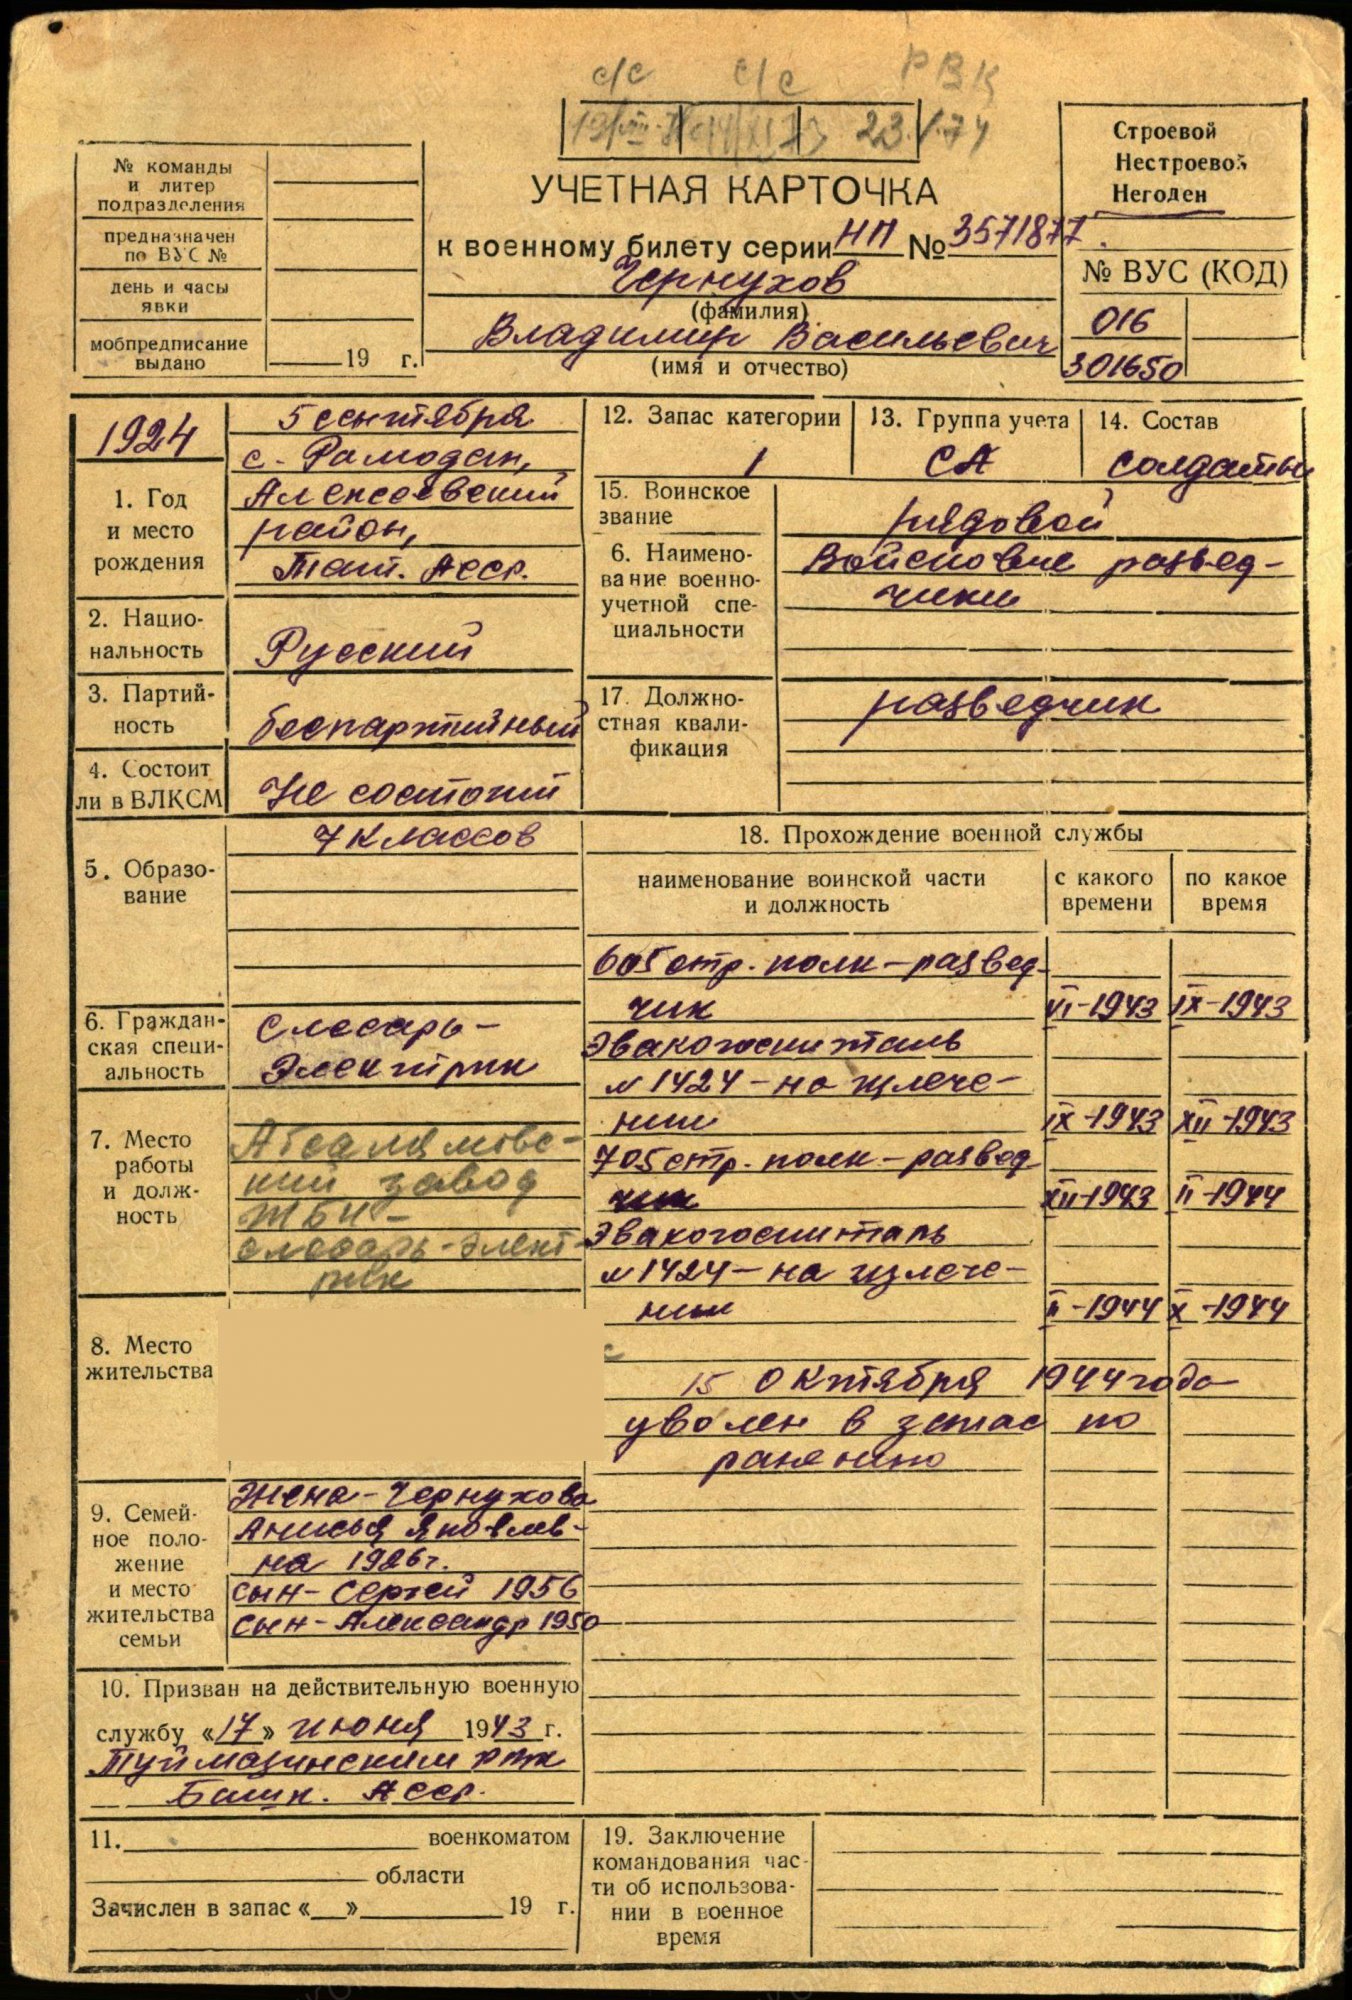 с/с с/с РВК
19/VIII-72 14/XI 73 23.1.74
УЧЕТНАЯ КАРТОЧКА
к военному билету серии НП № 3571877.
Чернухов
(фамилия)
Владимир Васильевич
(имя и отчество)
№ команды
и литер
подразделения
предназначен
по ВУС №
день и часы
явки
мобпредписание
выдано
19 г.
Строевой
Нестроевой
Негоден
№ ВУС (КОД)
016
301650
1924
1. Год
и место
рождения
5 сентября
с. Рамодан,
Алексеевский
район,
Тат. Асср.
2. Нацио-
нальность
Русский
3. Партий-
ность
беспартийный
4. Состоит
ли в ВЛКСМ
Не состоит
5. Образо-
вание
7 классов
6. Граждан-
ская специ-
альность
Слесарь-
Электрик
7. Место
работы
и долж-
ность
Абсалямовс-
кий завод
ЖБИ -
слесарь-элект-
рик
8. Место
жительства
9. Семей-
ное поло-
жение
и место
жительства
семьи
Жена - Чернухова
Анисья Яковлев-
на 1926г.
сын - Сергей 1956
Сын - Александр 1950
10. Призван на действительную военную
службу «17» июня 1943 г.
Туймазинским рвк
Башк. Асср.
11. военкоматом
области
Зачислен в запас « » 19 г.
12. Запас категории
1
13. Группа учета
СА
14. Состав
солдаты
15. Воинское
звание
рядовой
6. Наимено-
вание военно-
учетной спе-
циальности
Войсковые развед-
чики
17. Должно-
стная квали-
фикация
разведчик
18. Прохождение военной службы
наименование воинской части
и должность
с какого
времени
по какое
время
605 стр. полк - развед-
чик VI-1943 IX-1943
Эвакогоспиталь
№1424 - на излече-
нии IX-1943 XII-1943
705 стр. полк - развед
чик XII-1943 II-1944
Эвакогоспиталь
№1424 - на излече-
нии II-1944 X-1944
15 октября 1944 года
уволен в запас по
ранению
19. Заключение
командования час-
ти об использова-
нии в военное
время